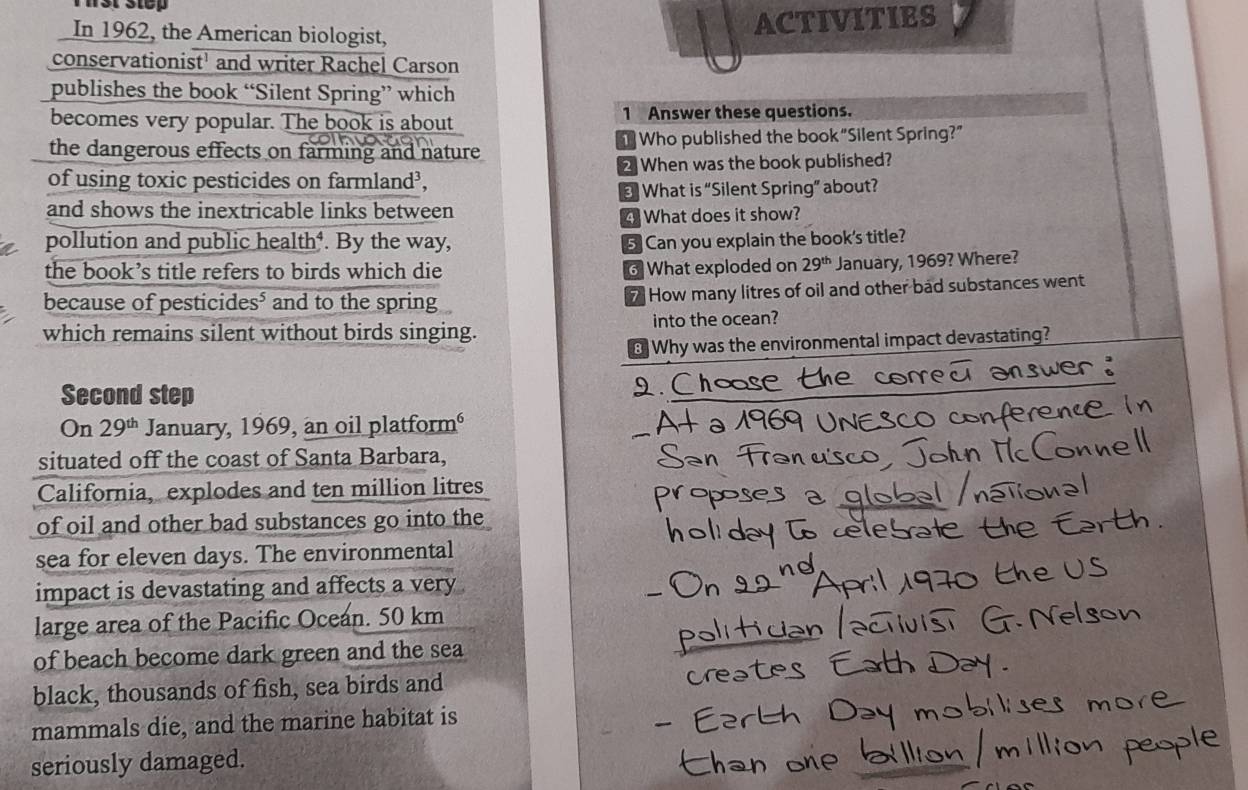 First step
In 1962, the American biologist,
conservationist¹ and writer Rachel Carson
publishes the book “Silent Spring” which
becomes very popular. The book is about
the dangerous effects on farming and nature
of using toxic pesticides on farmland³,
and shows the inextricable links between
pollution and public health⁴. By the way,
the book’s title refers to birds which die
because of pesticides⁵ and to the spring
which remains silent without birds singing.
Second step
On 29th January, 1969, an oil platform⁶
situated off the coast of Santa Barbara,
California, explodes and ten million litres
of oil and other bad substances go into the
sea for eleven days. The environmental
impact is devastating and affects a very
large area of the Pacific Ocean. 50 km
of beach become dark green and the sea
black, thousands of fish, sea birds and
mammals die, and the marine habitat is
seriously damaged.
ACTIVITIES
1 Answer these questions.
1 Who published the book “Silent Spring?”
2 When was the book published?
3 What is “Silent Spring” about?
4 What does it show?
5 Can you explain the book’s title?
6 What exploded on 29th January, 1969? Where?
7 How many litres of oil and other bad substances went
into the ocean?
8 Why was the environmental impact devastating?
2. Choose the correct answer:
- At a 1969 UNESCO conference in
San Francisco, John McConnell
proposes a global / national
holiday to celebrate the Earth.
- On 22nd April, 1970 the US
politician / activist G. Nelson
creates Earth Day.
- Earth Day mobilises more
than one billion / million people